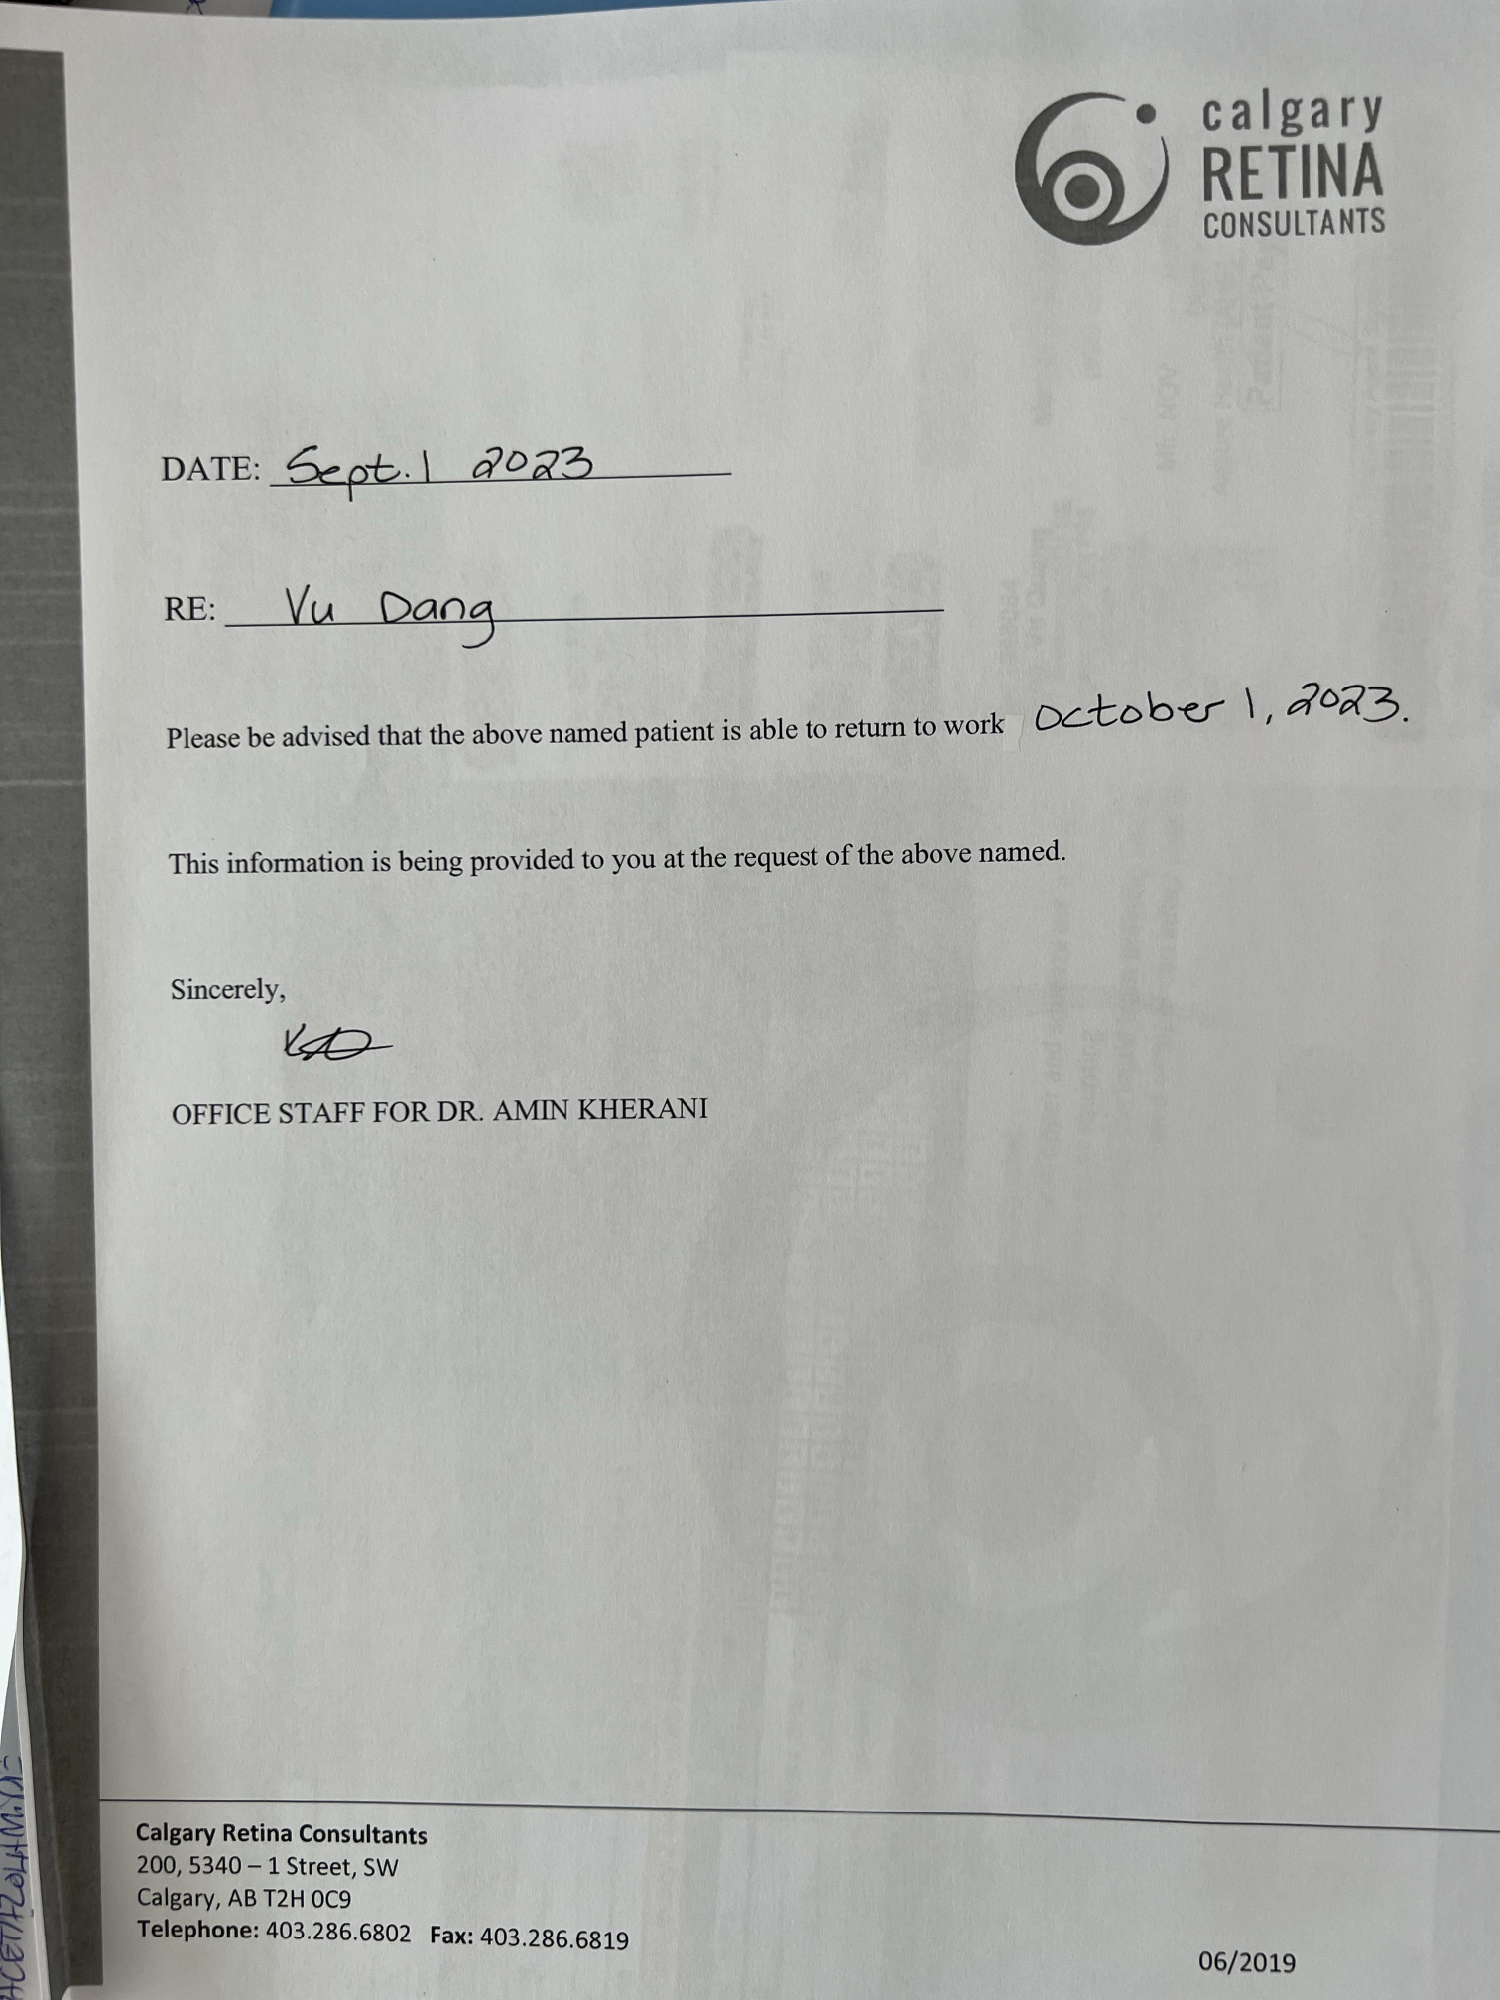 calgary
RETINA
CONSULTANTS
DATE: Sept. 1 2023
RE: Vu Dang
Please be advised that the above named patient is able to return to work October 1, 2023.
This information is being provided to you at the request of the above named.
Sincerely,
OFFICE STAFF FOR DR. AMIN KHERANI
Calgary Retina Consultants
200, 5340 – 1 Street, SW
Calgary, AB T2H 0C9
Telephone: 403.286.6802 Fax: 403.286.6819
06/2019
ACETAZOLAMIDE